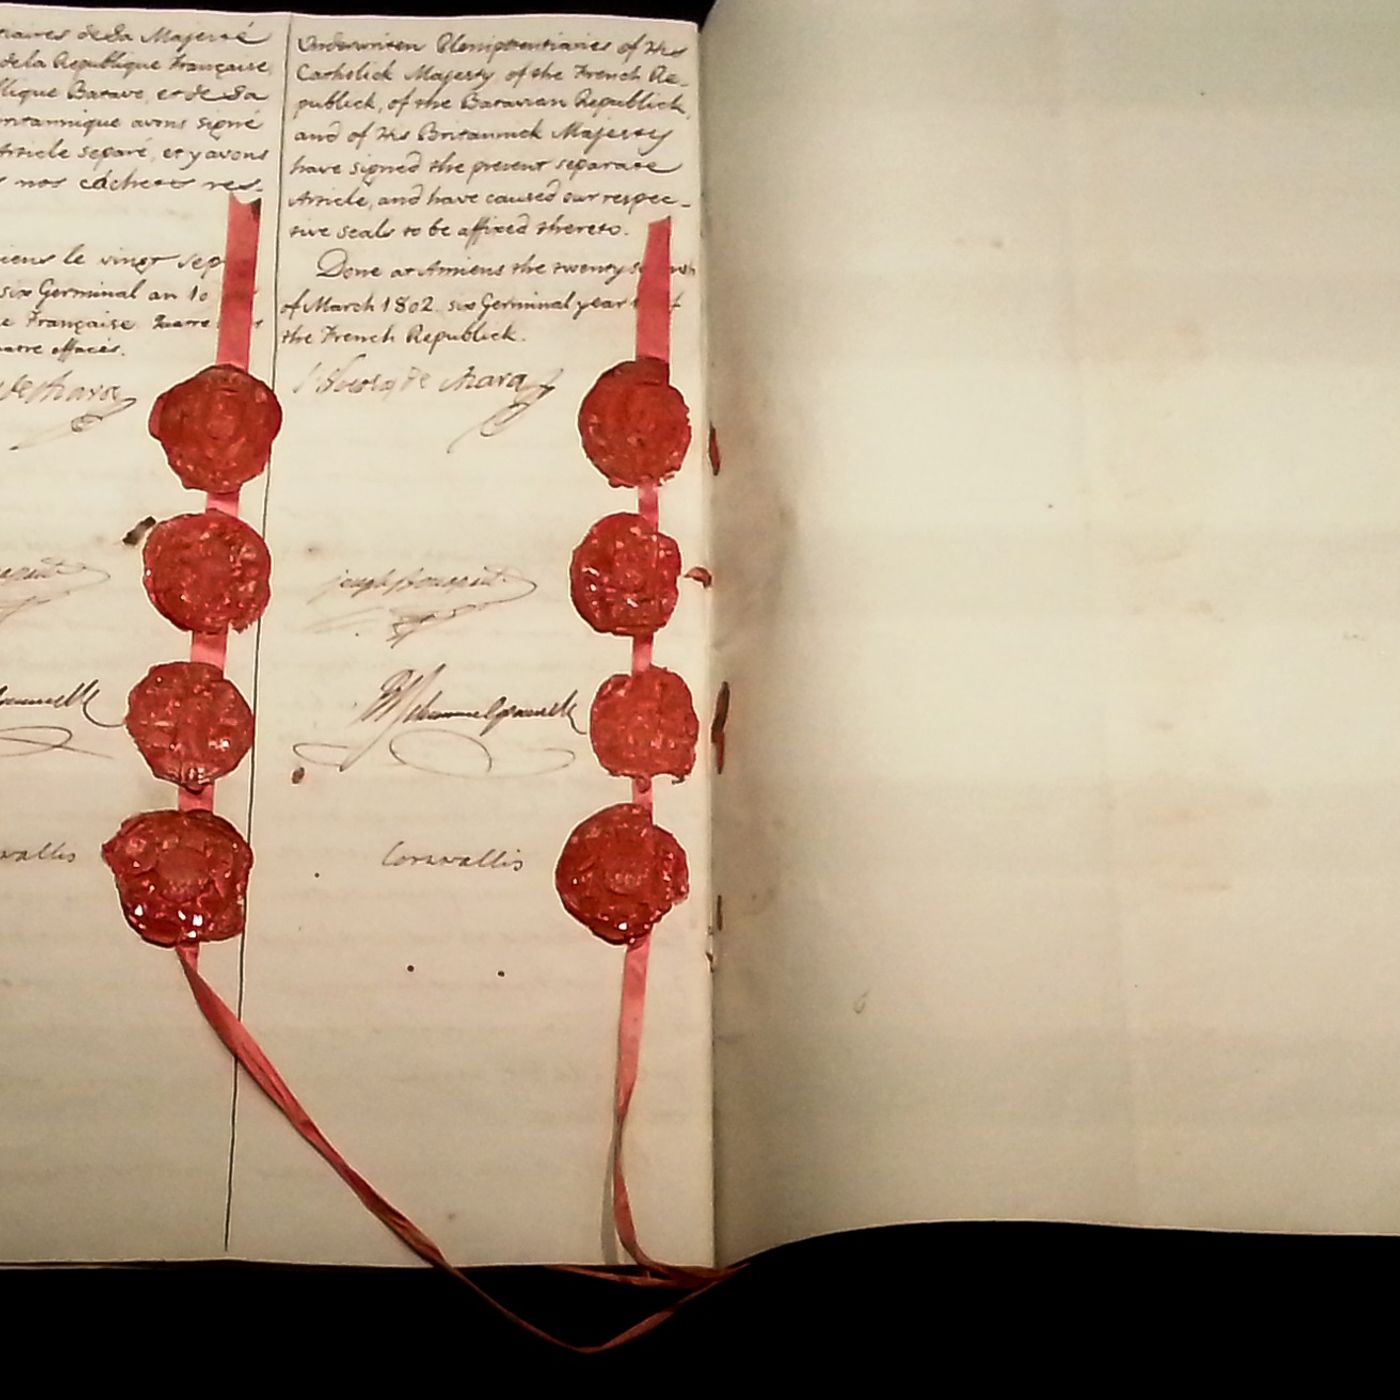 de Sa Majesté
de la Republique Française,
Batave, et de Sa
avons signé
Article separé, et y avons
nos cachets res-
le vingt sep
six Germinal an 10
Française. Quatre
effacés.
Underwriten Plenipotentiaries of His
Catholick Majesty of the French Re-
publick, of the Batavian Republick,
and of His Britannick Majesty
have signed the present separate
Article, and have caused our respec-
tive seals to be affixed thereto.
Done at Amiens the twenty
of March 1802. six Germinal year
the French Republick.
de Azara
joseph Bonaparte
Schimmelpenninck
Cornwallis